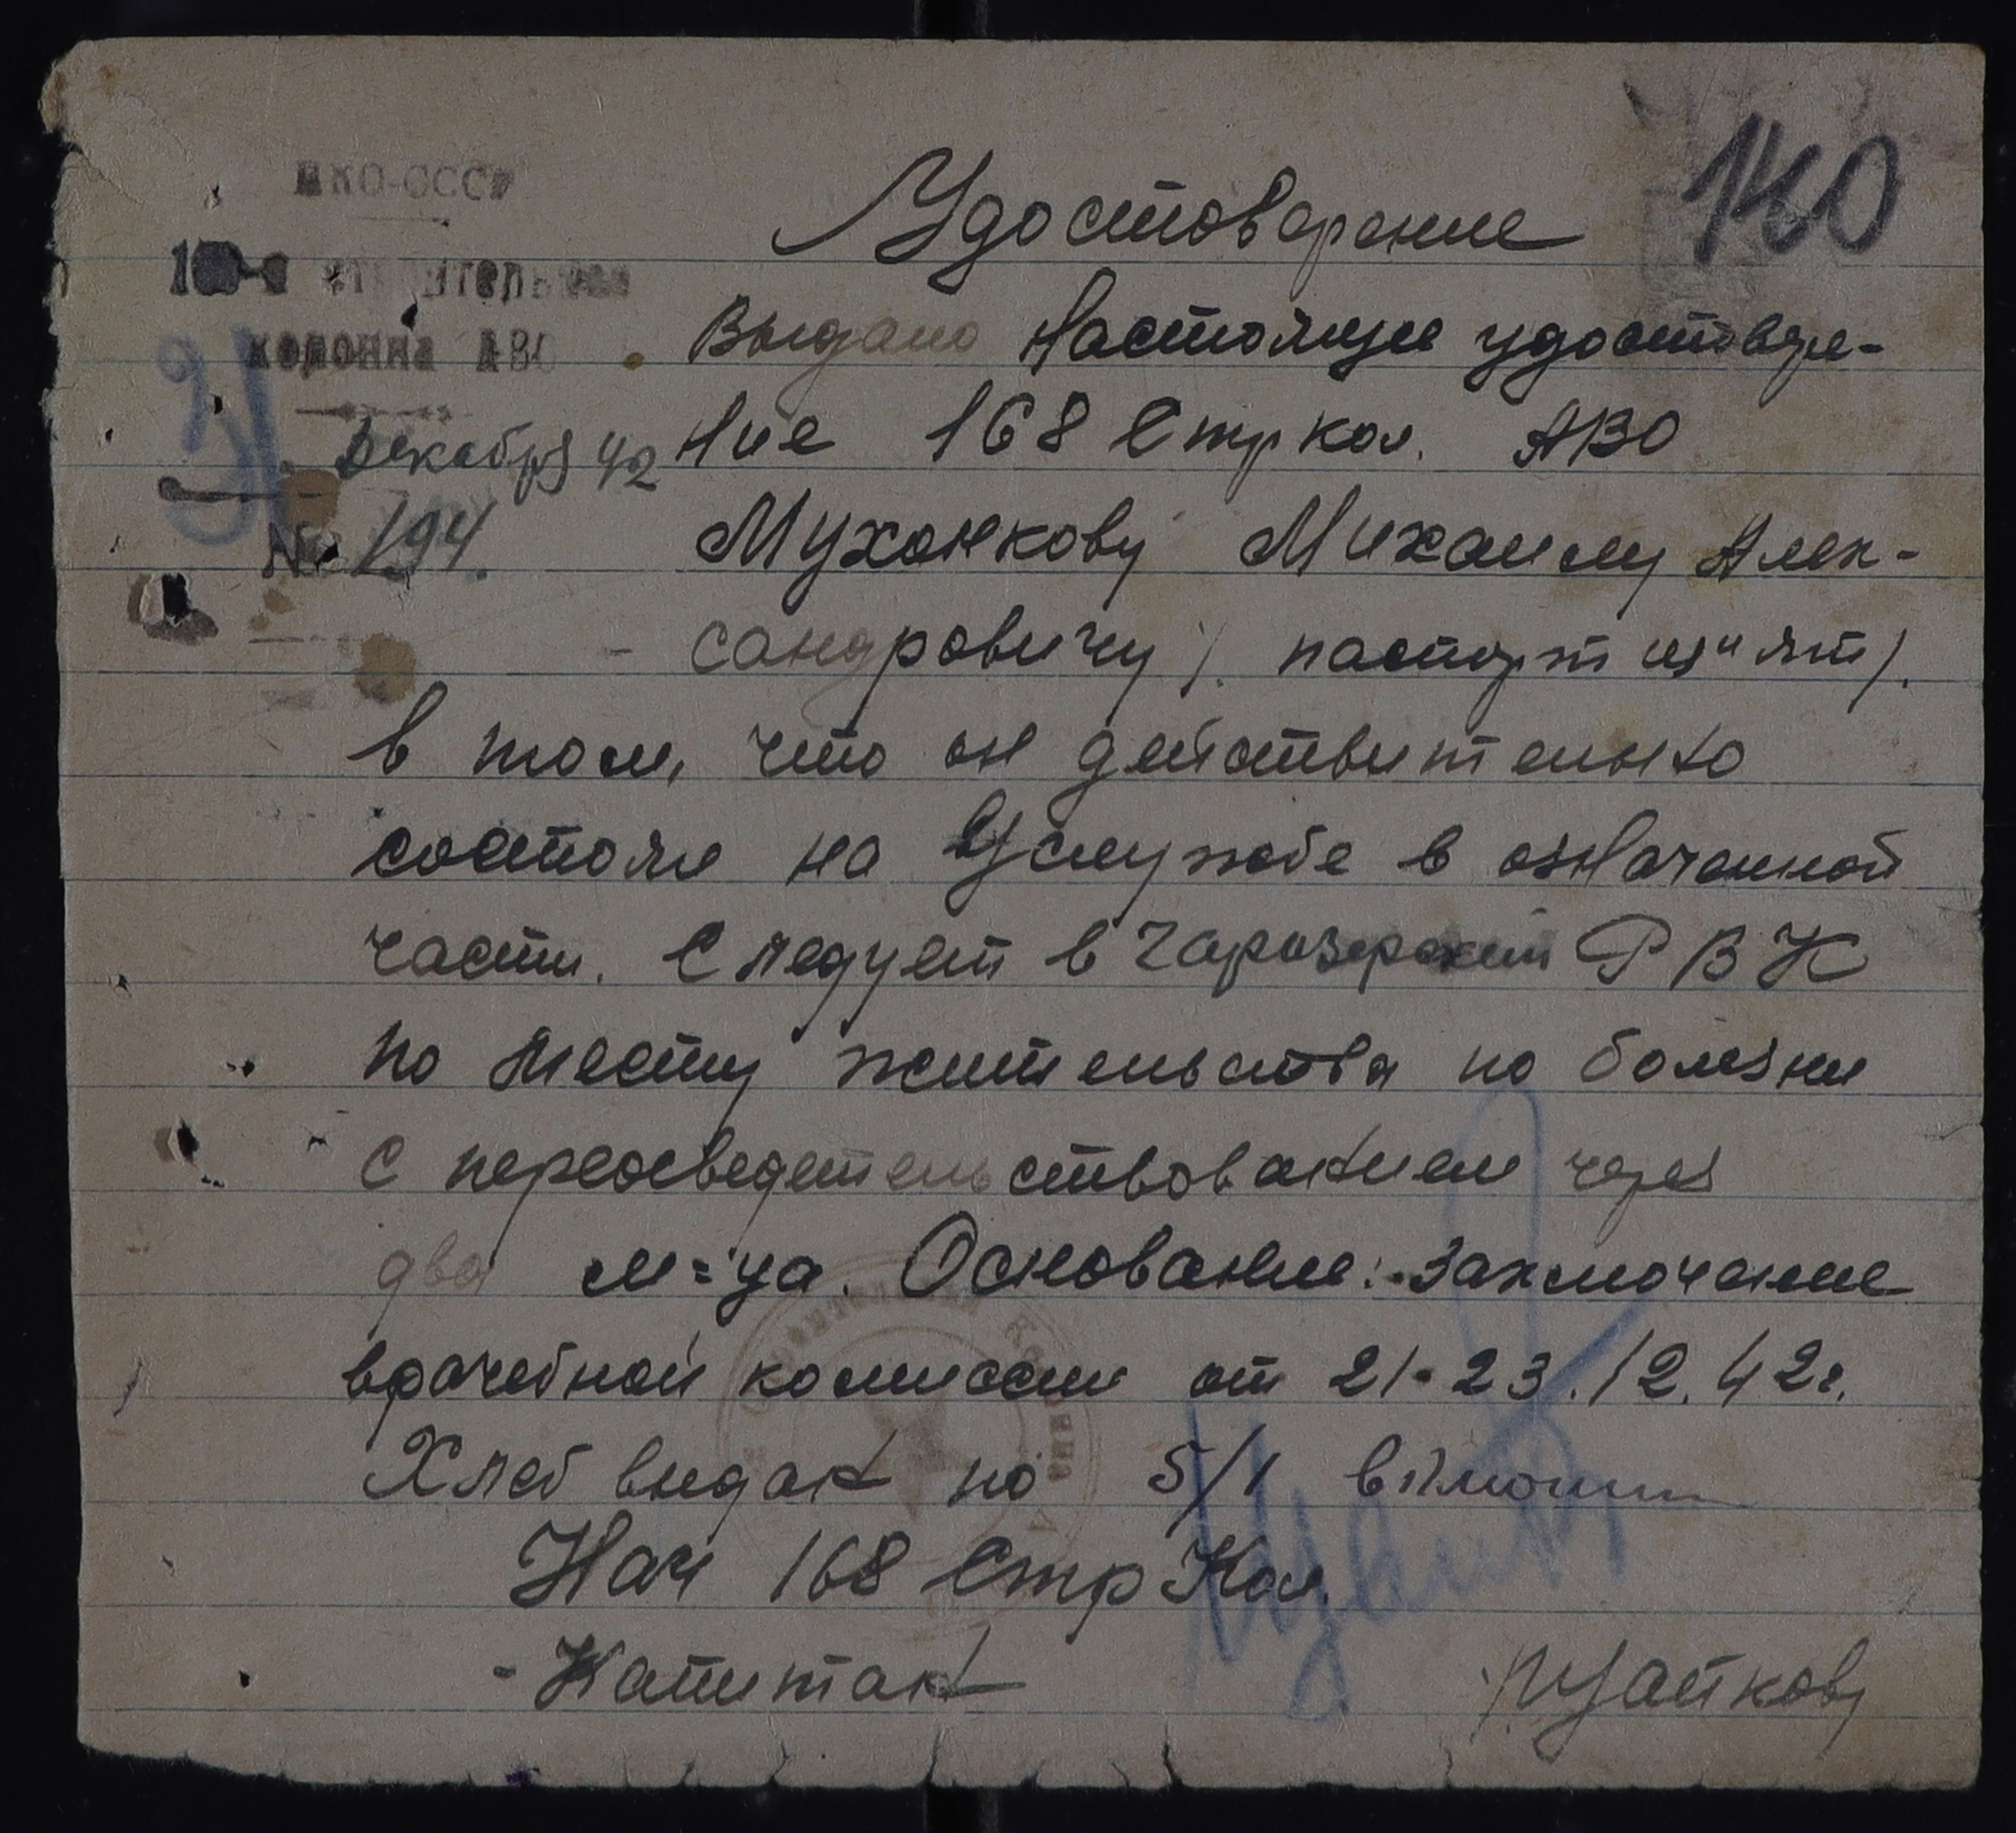 140
НКО-СССР
Удостоверение
строительная
колонна АВО
Выдано настоящее удостовере-
31 декабря 42
ние 168 Стр кол. АВО
№ 194.
Мухонкову Михаилу Алек-
сандровичу /. паспорт изъят /.
в том, что он действительно
состоял на службе в означенной
части. Следует в Чарозерский РВК
по месту жительства по болезни
с переосведетельствованием через
два м=ца. Основание: Заключение
врачебной комиссии от 21-23.12.42г.
Хлеб выдан по 5/1
Нач 168 Стр Кол.
Капитан